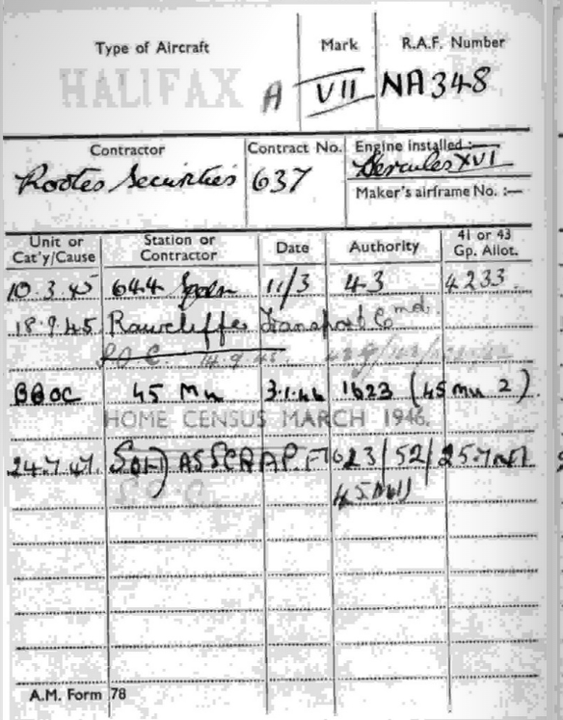 Type of Aircraft Mark R.A.F. Number
HALIFAX A VII NA348
Contractor Contract No. Engine installed:—
Rootes Securities 637 Hercules XVI
Maker's airframe No. :—
Unit or Cat'y/Cause Station or Contractor Date Authority 41 or 43 Gp. Allot.
10.3.45 644 Sqdn 11/3 43 4233
18.9.45 Rawcliffe Transport Cmd.
14.9.45
45 Mu 3.1.46 1623 (45 mu 2)
HOME CENSUS MARCH 1946.
24.7.47 SOLD AS SCRAP. 623/52/ 25.7.47
45MU
A.M. Form 78